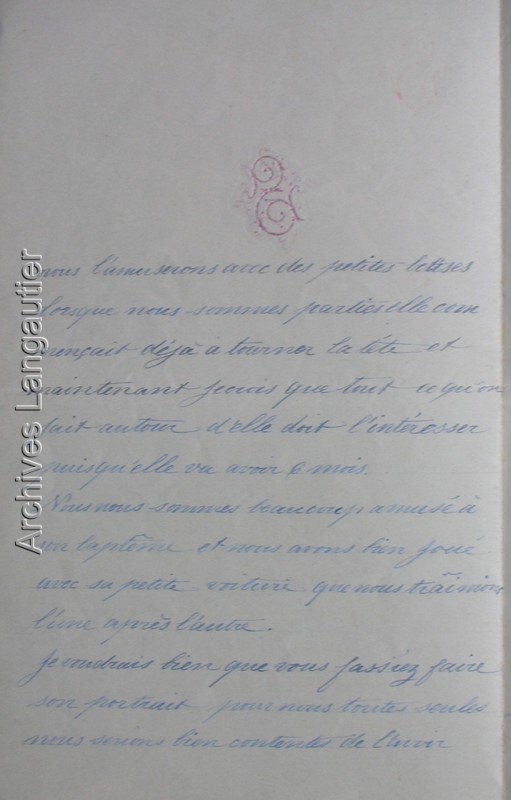 nous l'amuserons avec des petites bêtises
lorsque nous sommes parties elle com
mençait déjà à tourner la tête et
maintenant je crois que tout ce qu'on
fait autour d'elle doit l'intéresser
puisqu'elle va avoir 6 mois.
Nous nous sommes beaucoup amusé à
son baptême et nous avons bien joué
avec sa petite voiture que nous traînions
l'une après l'autre.
Je voudrais bien que vous fassiez faire
son portrait pour nous toutes seules
nous serions bien contentes de l'avoir
Archives Langautier